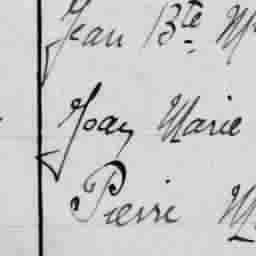 Jean Bte M
Joay Marie
Pierre M